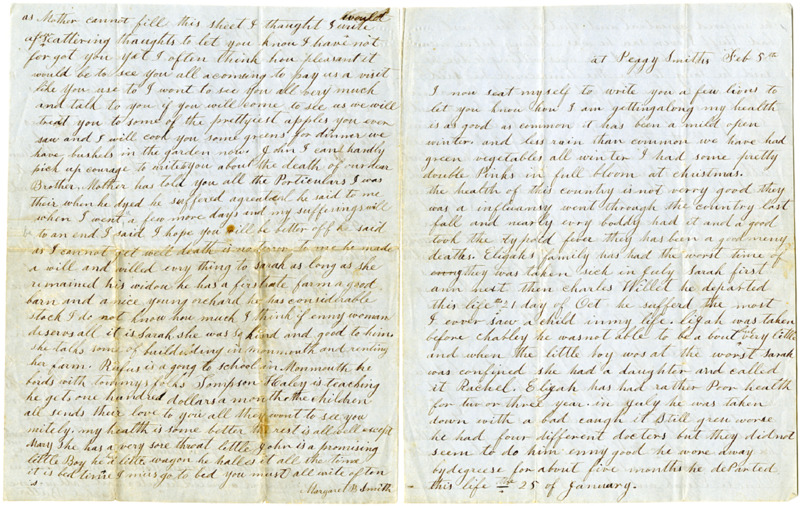 as Mother cannot fill this sheet I thought I would write
a scattering thoughts to let you know I have not
forgot you yet I often think how pleasant it
would be to see you all acoming to pay us a visit
like you use to I wont to see you all very much
and talk to you if you will come to see us we will
treat you to some of the prettyest apples you ever
saw and I will cook you some greens for dinner we
have bushels in the garden now. I can hardly
pick up courage to write you about the death of our dear
Brother. Mother has told you all the Porticulars I was
their when he dyed he suffered agreateal he said to me
when I went a few more days and my sufferings will
to an end I said I hope you will be better off he said
as I cannot get well death is no teror to me he made
a will and willed evry thing to Sarah as long as she
remained his widow he has a firstrate farm a good
barn and a nice young orchard he has considerable
stock I do not know how much I think if enny woman
deservs all it is Sarah she was so kind and good to him
she talks some of building in monmouth and renting
her farm. Rufus is agoing to school in Monmouth he
bords with tommys folks Simpson Haley is teaching
he gets one hundred dollars a month the children
all sends their love to you all they wont to see you
mitely. my health is some better the rest is all well except
Mary she has a very sore throat little John is a promising
little Boy he a little wagon he halls it all the time
it is bed time I mus go to bed you must all write often
Margaret B Smith
at Peggy Smiths Feb 5th
I now seat myself to write you a few lions to
let you know how I am getting along my health
is as good as common it has been a mild open
winter and less rain than common we have had
green vegetables all winter I had some pretty
double Pinks in full bloom at christmas.
the health of this country is not verry good they
was a influensy went through the country last
fall and nearly evry boddy had it and a good
took the typoid fever they has been a good meny
deaths. Elijahs family has had the worst time of
they was taken sick in July Sarah first
ann next then charles Willet he departed
this life 21 day of Oct he sufferd the most
I ever saw a child in my life. lijah was taken
before charley he was not able to be a bout but very little
and when the little boy was at the worst sarah
was confined she had a daughter and called
it Rachel. Elijah has had rather Poor health
for two or three year in july he was taken
down with a bad caugh it still grew worse
he had four different doctors but they did not
seem to do him enny good he wore away
by degreese for about five months he departed
this life the 25 of January.